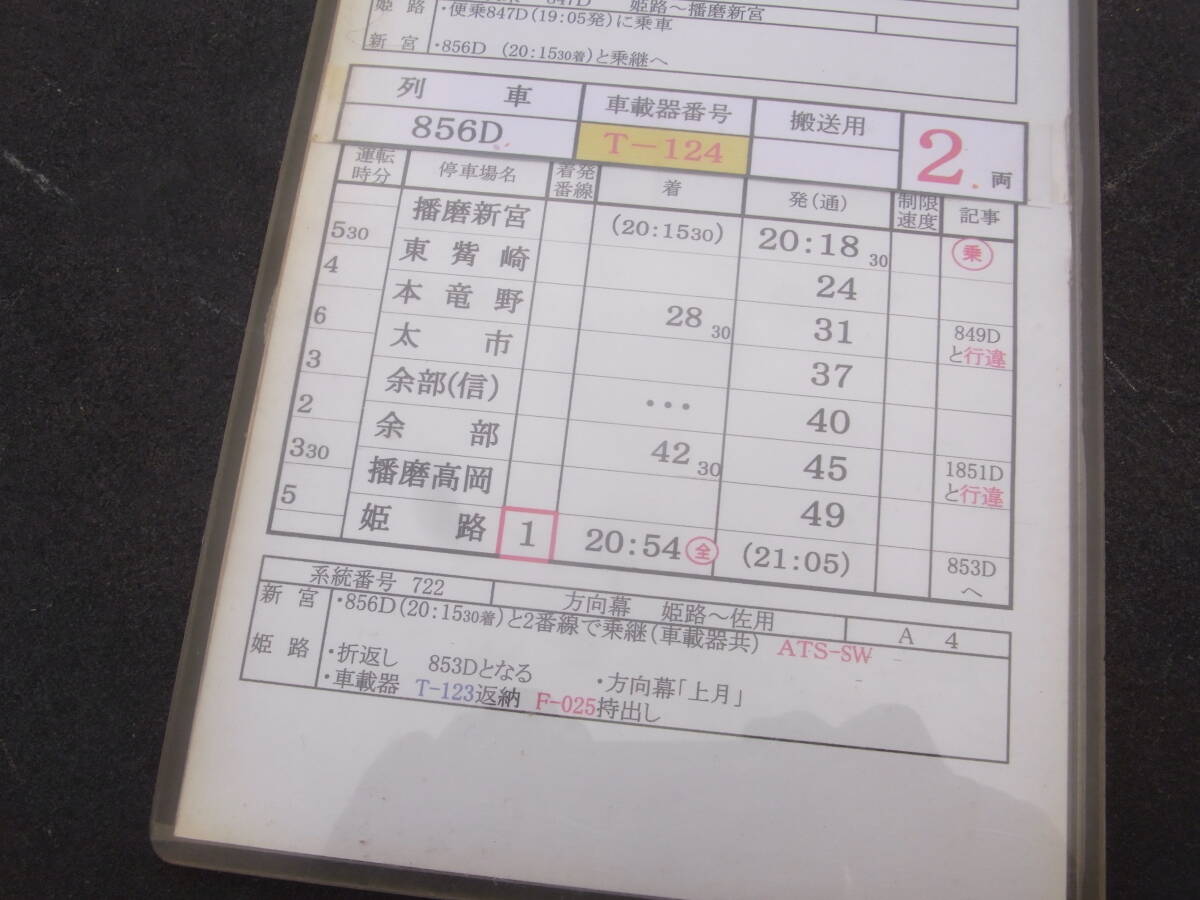 847D 姫路～播磨新宮
姫路 ・便乗847D(19:05発)に乗車
新宮 ・856D (20:1530着)と乗継へ
列車 車載器番号 搬送用 2両
856D T-124
運転時分 停車場名 着発番線 着 発(通) 制限速度 記事
播磨新宮 (20:1530) 20:18 30 乗
530
東觜崎 24
4
本竜野 28 30 31 849Dと行違
6
太市 37
3
余部(信) ・・・ 40
2
余部 42 30 45 1851Dと行違
330
播磨高岡 49
5
姫路 1 20:54 全 (21:05) 853Dへ
系統番号 722 方向幕 姫路～佐用 A 4
新宮 ・856D(20:1530着)と2番線で乗継(車載器共) ATS-SW
姫路 ・折返し 853Dとなる ・方向幕「上月」
・車載器 T-123返納 F-025持出し